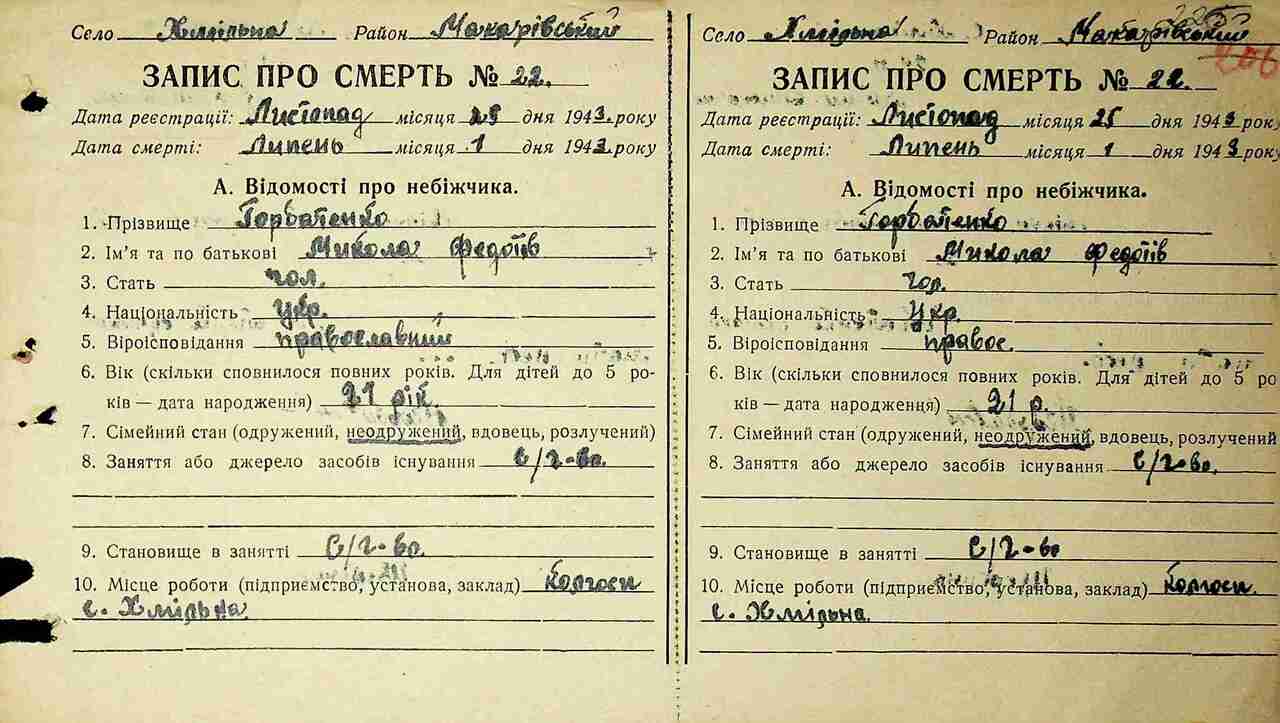 Село Хмільна Район Макарівський
ЗАПИС ПРО СМЕРТЬ № 22.
Дата реєстрації: Листопад місяця 25 дня 1943. року
Дата смерті: Липень місяця 1 дня 1943. року
А. Відомості про небіжчика.
1. Прізвище Горбатенко
2. Ім'я та по батькові Микола Федотів
3. Стать чол.
4. Національність Укр.
5. Віроісповідання православний
6. Вік (скільки сповнилося повних років. Для дітей до 5 ро-
ків — дата народження) 21 рік.
7. Сімейний стан (одружений, неодружений, вдовець, розлучений)
8. Заняття або джерело засобів існування С/г-во.
9. Становище в занятті С/г-во.
10. Місце роботи (підприємство, установа, заклад) Колгосп
с. Хмільна.
Село Хмільна Район Макарівський
206
ЗАПИС ПРО СМЕРТЬ № 22.
Дата реєстрації: Листопад місяця 25 дня 1943 рок
Дата смерті: Липень місяця 1 дня 1943 рок
А. Відомості про небіжчика.
1. Прізвище Горбатенко
2. Ім'я та по батькові Микола Федотів
3. Стать Чол.
4. Національність Укр.
5. Віроісповідання Правос.
6. Вік (скільки сповнилося повних років. Для дітей до 5 ро
ків — дата народження) 21 р.
7. Сімейний стан (одружений, неодружений, вдовець, розлучений
8. Заняття або джерело засобів існування С/г-во.
9. Становище в занятті С/г-во
10. Місце роботи (підприємство, установа, заклад) Колгосп.
с. Хмільна.